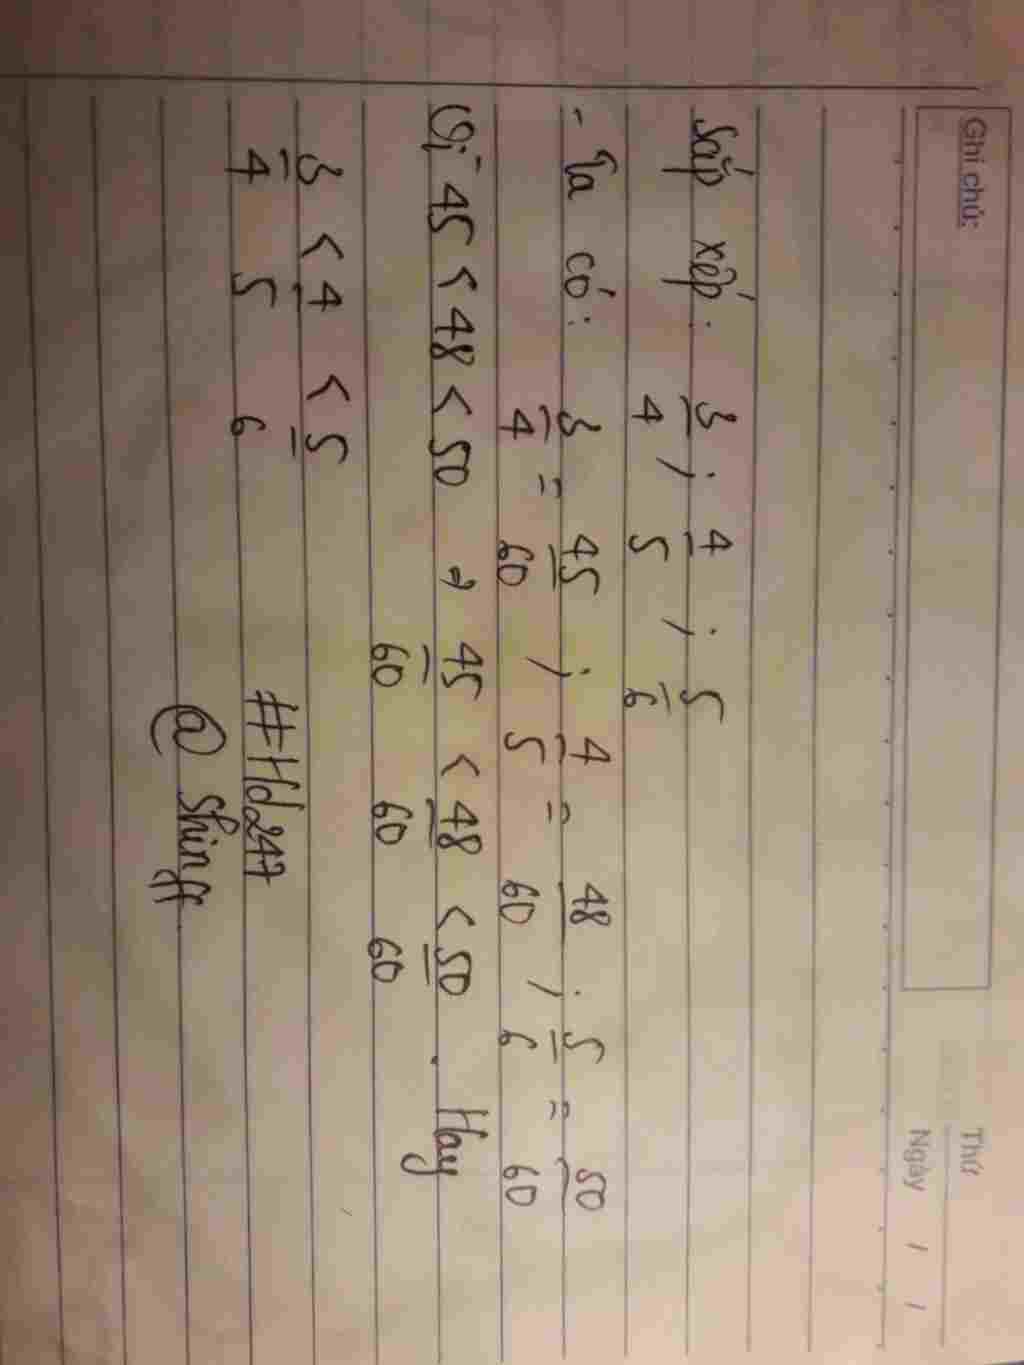 Ghi chú:
Thứ
Ngày / /
Sắp xếp: 3/4 ; 4/5 ; 5/6
- Ta có: 3/4 = 45/60 ; 4/5 = 48/60 ; 5/6 = 50/60
Vì 45 < 48 < 50 → 45/60 < 48/60 < 50/60 . Hay
3/4 < 4/5 < 5/6
#Hd247
@ Shinff